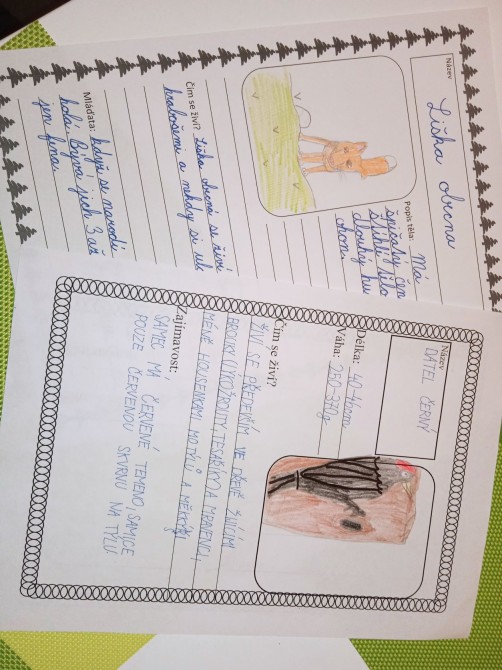 Název
Liška obecná
Popis těla: Má
špičatý čen
štíhlé tělo
dlouhý
Čím se živí? Liška obecná se živí
hrabošemi a někdy si ulo
Mláďata: když se narodí
holá. Bývá jich 3 až
jen fena.
Název
DATEL ČERNÝ
Délka: 40-46cm
Váha: 250-370g
Čím se živí?
ŽIVÍ SE PŘEDEVŠÍM VE DŘEVĚ ŽIJÍCÍM
BROUKY (LÝKOŽROUTY, TESAŘÍKY) A MRAVENCI,
MÉNĚ HOUSENKAMI MOTÝLŮ A MĚKKÝŠI
Zajímavost:
SAMEC MÁ ČERVENÉ TEMENO, SAMICE
POUZE ČERVENOU SKVRNU NA TÝLU